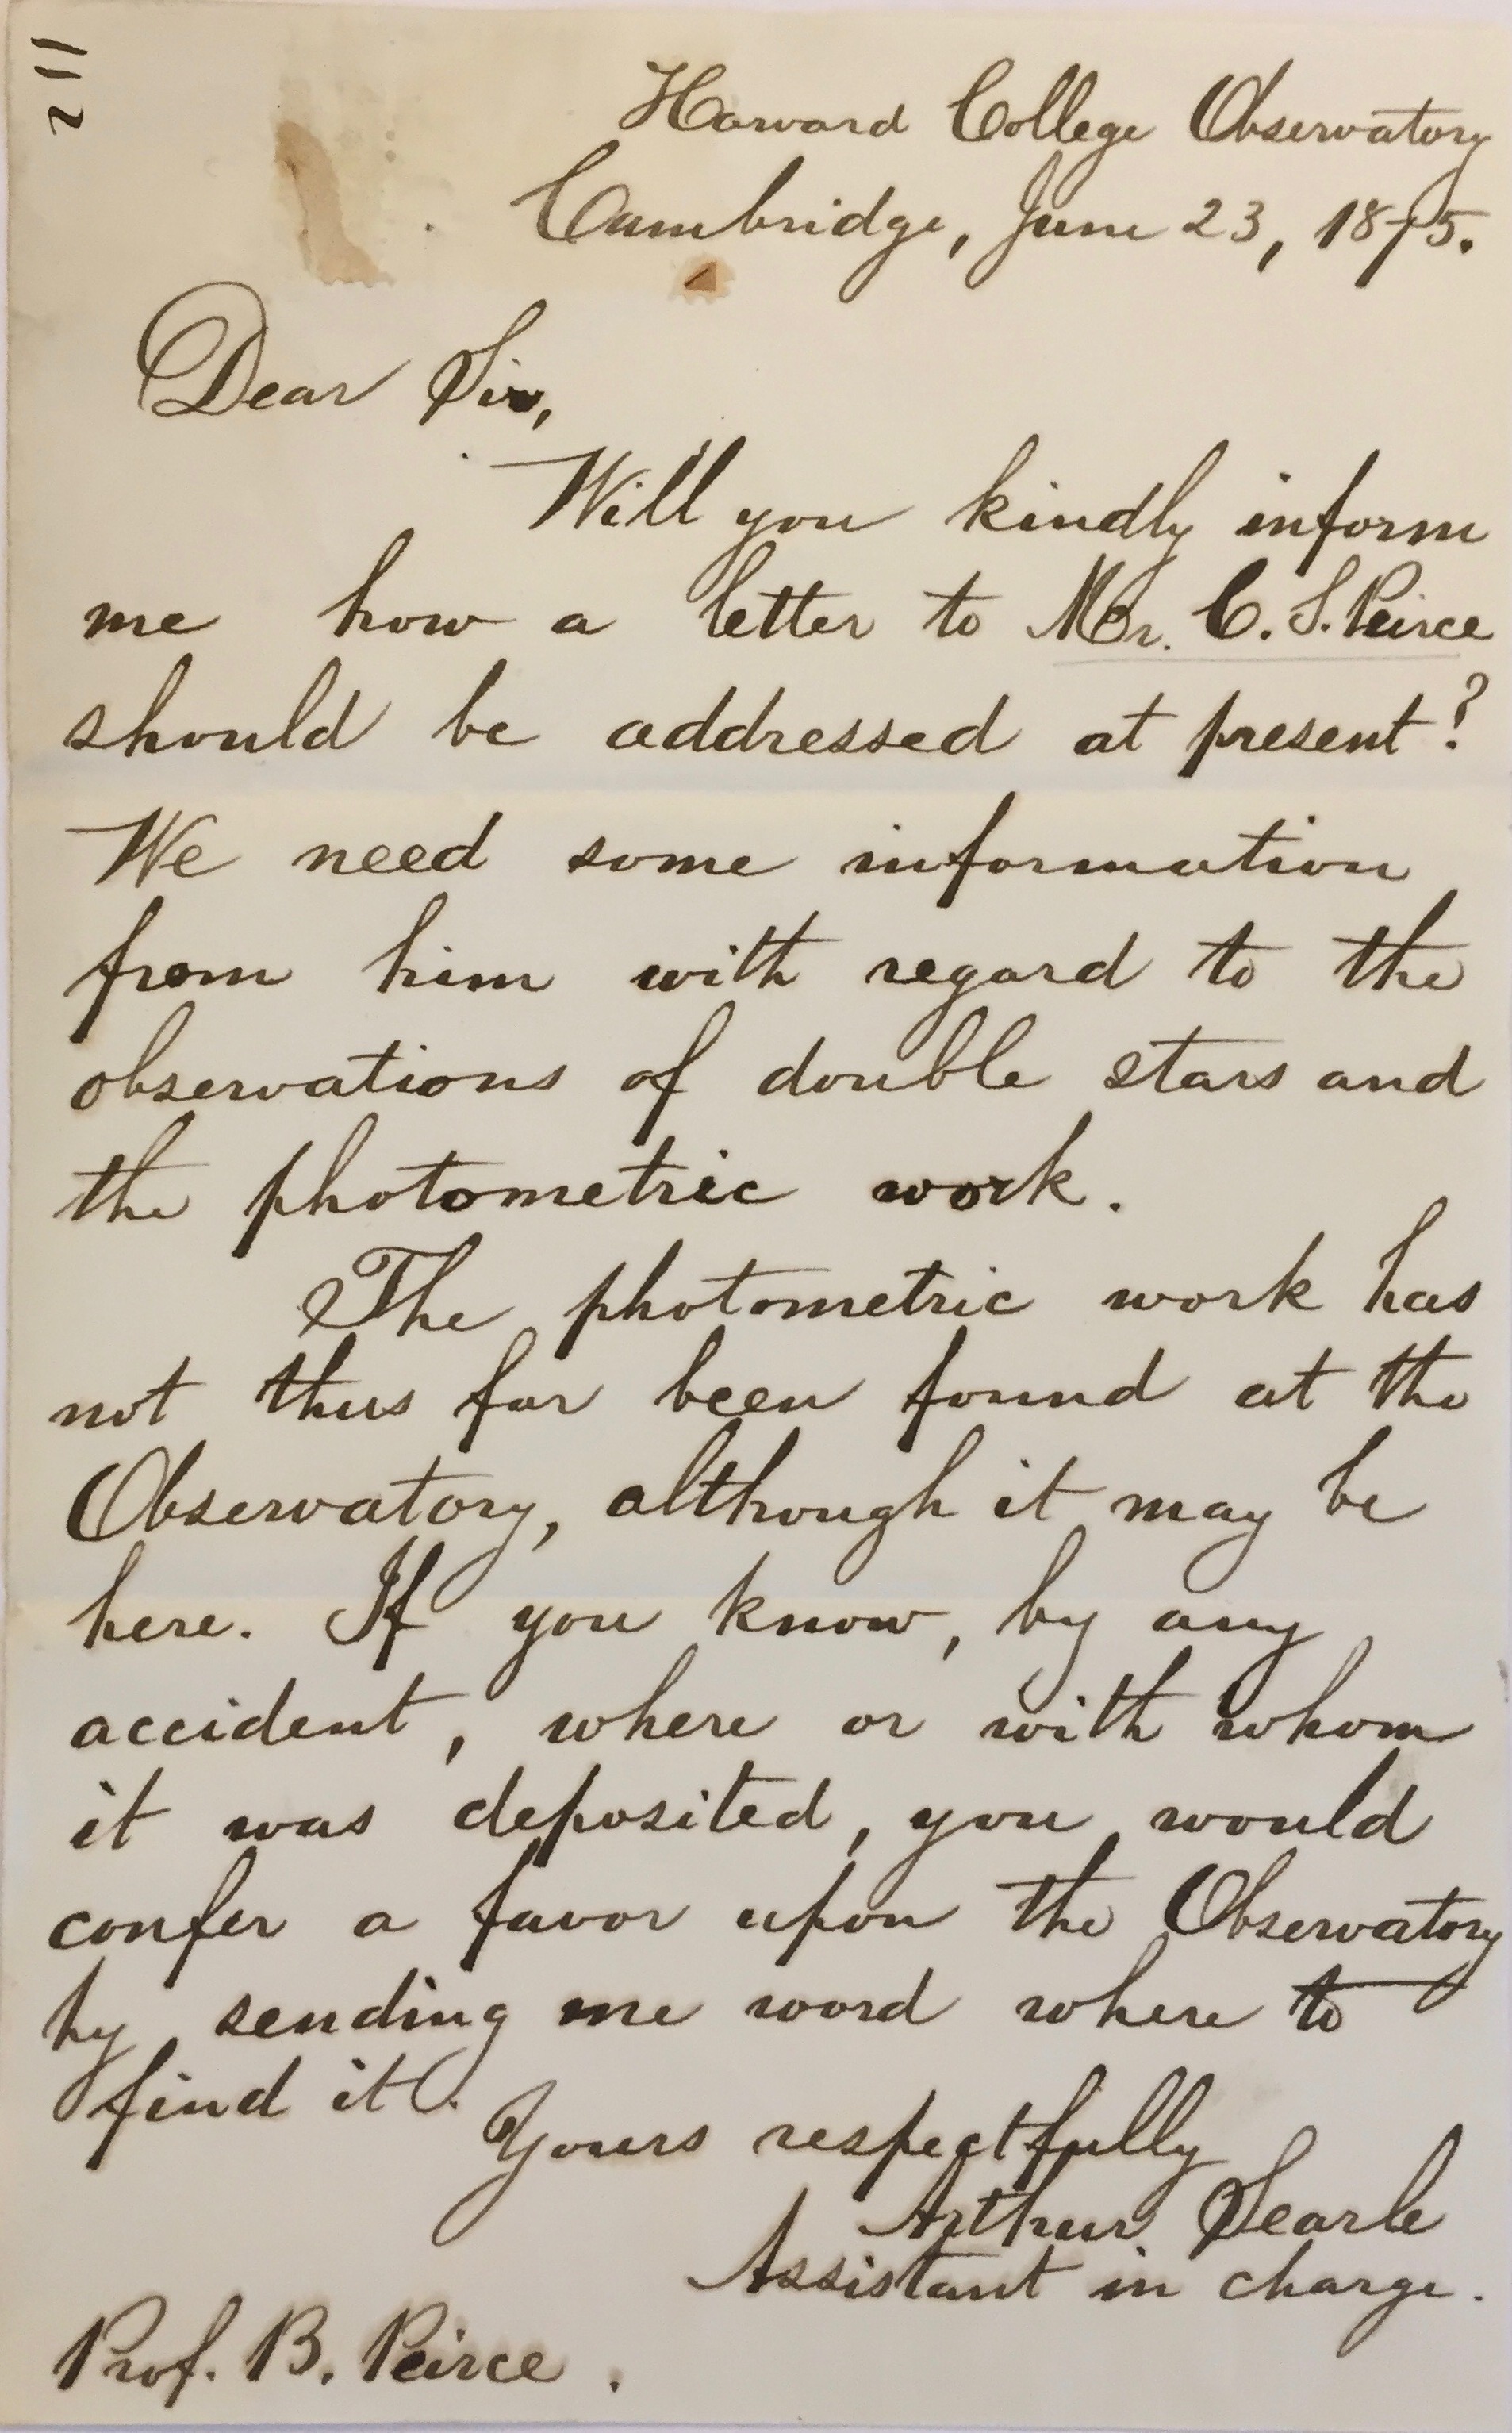 211
Harvard College Observatory
Cambridge, June 23, 1875.
Dear Sir,
Will you kindly inform
me how a letter to Mr. C. S. Peirce
should be addressed at present?
We need some information
from him with regard to the
observations of double stars and
the photometric work.
The photometric work has
not thus far been found at the
Observatory, although it may be
here. If you know, by any
accident, where or with whom
it was deposited, you would
confer a favor upon the Observatory
by sending me word where to
find it.
Yours respectfully
Arthur Searle
Assistant in charge.
Prof. B. Peirce.